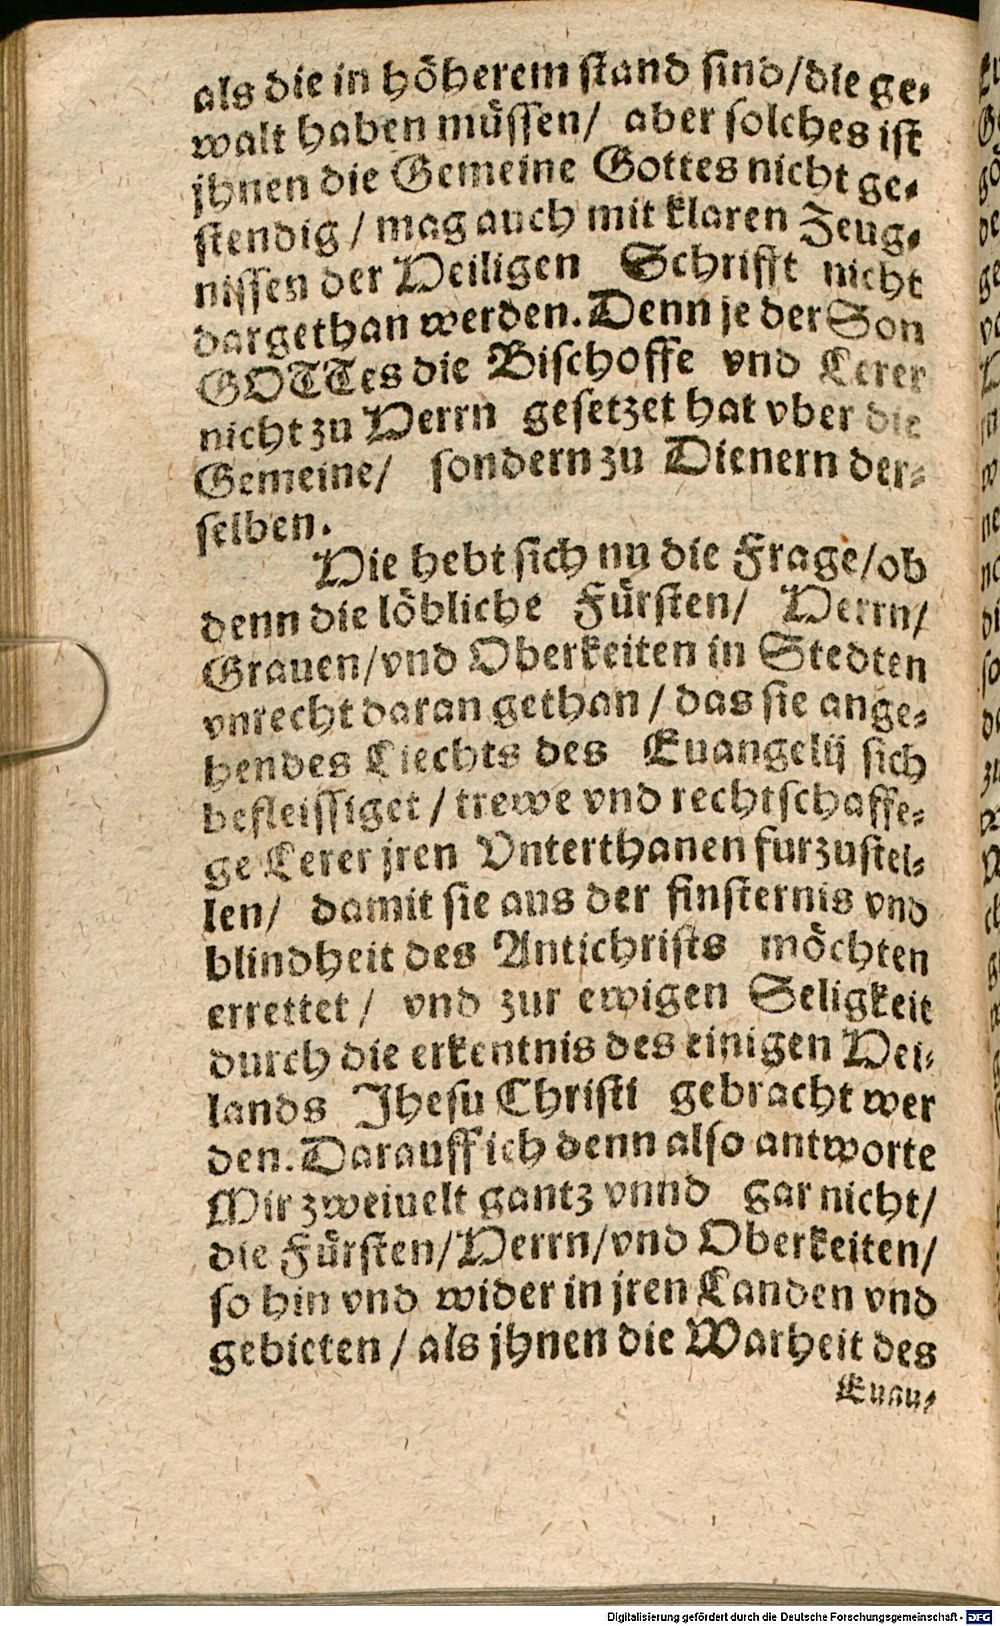 als die in höherem stand sind/die ge⸗
walt haben müssen/ aber solches ist
jhnen die Gemeine Gottes nicht ge⸗
stendig / mag auch mit klaren Zeug⸗
nissen der Heiligen Schrifft nicht
dargethan werden. Denn je der Son
GOTTes die Bischoffe vnd Lerer
nicht zu Herrn gesetzet hat vber die
Gemeine/ sondern zu Dienern der⸗
selben.
Hie hebt sich nu die Frage/ob
denn die löbliche Fürsten/ Herrn/
Grauen/vnd Oberkeiten in Stedten
vnrecht daran gethan / das sie ange⸗
hendes Liechts des Euangelij sich
befleissiget / trewe vnd rechtschaffe⸗
ge Lerer jren Vnterthanen furzustel⸗
len/ damit sie aus der finsternis vnd
blindheit des Antichrists möchten
errettet / vnd zur ewigen Seligkeit
durch die erkentnis des einigen Hei⸗
lands Jhesu Christi gebracht wer
den. Darauff ich denn also antworte
Mir zweiuelt gantz vnnd gar nicht/
die Fürsten/Herrn/vnd Oberkeiten/
so hin vnd wider in jren Landen vnd
gebieten / als jhnen die Warheit des
Euan⸗
Digitalisierung gefördert durch die Deutsche Forschungsgemeinschaft - DFG